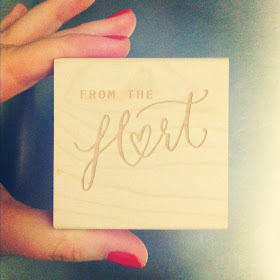 FROM THE
Hart